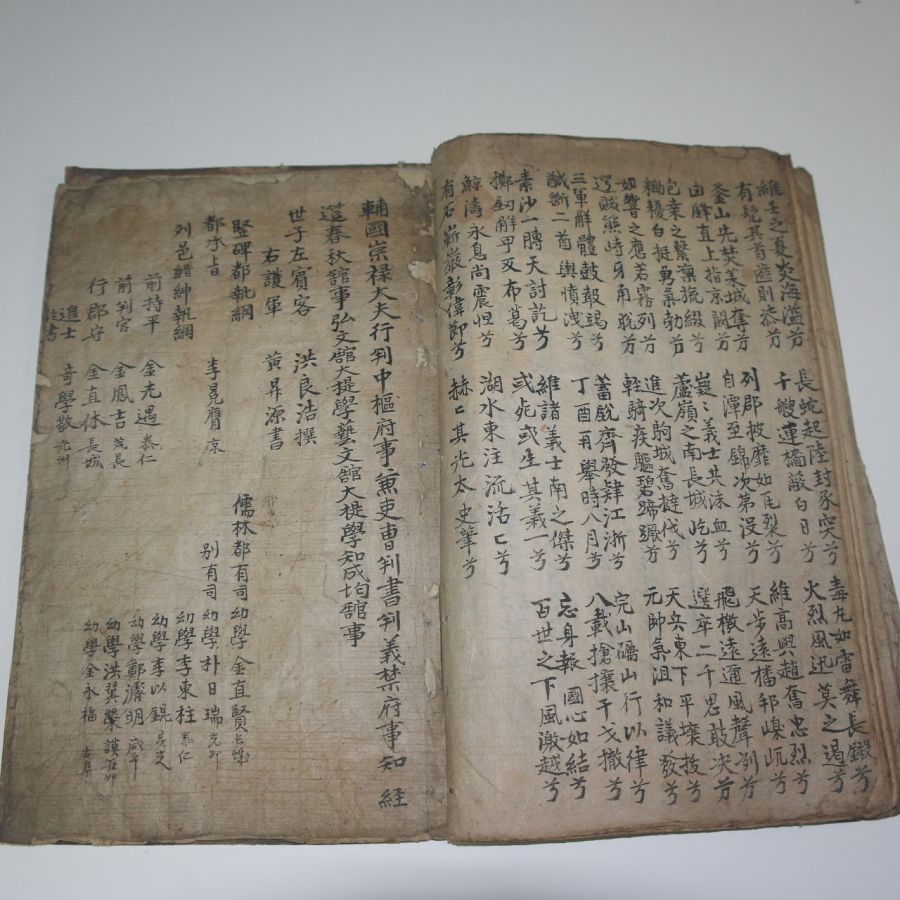 維壬之夏炎海溢兮 長蛇起陸封豕突兮 毒丸如雷舞長鎩兮
有髡其首齒則柒兮 千艘蓮橘蔽白日兮 火烈風迅莫之遏兮
釜山先焚萊城奪兮 列郡披靡如瓦裂兮 維高與趙奮忠烈兮
宙鋒直上指京闕兮 自潭至錦次第沒兮 天步遠播邦嵲屼兮
包桑之繫凜旒綴兮 嶷〻義士共沫血兮 飛檄遠邇風聲冽兮
耰白挺勇氣勃兮 蘆嶺之南長城屹兮 選卒二千思敵決兮
如響之應若霧列兮 進次駒城奮撻伐兮 天兵東下平壤拔兮
逻賊熊峙牙角脫兮 輕騎疾驅碧蹄蹶兮 元帥氣沮和議發兮
三軍解體鼓鼙竭兮 蓄銳齊發肆江浙兮 完山礪山行以律兮
馘斷二酋輿憤洩兮 丁酉再舉時八月兮 八載搶攘干戈撤兮
素沙一勝天討訖兮 維諸義士南之傑兮 忘身報國心如結兮
擲釼解甲反布葛兮 或死或生其義一兮 百世之下風激越兮
鯨濤永息尚震怛兮 湖水東注流活〻兮
有石嶄巖彰偉節兮 赫〻其光太史筆兮
輔國崇祿大夫行判中樞府事兼吏曺判書判義禁府事知 経
莚春秋舘事弘文舘大提學藝文舘大提學知成均舘事
世子左賓客 洪良浩撰
右護軍 黃昇源書
竪碑都執綱 李晃膺 京 儒林都有司 幼學 金直賢 長城
都承旨 別有司 幼學 朴日瑞 光州
列邑縉紳執綱 幼學 李東柱 泰仁
前持平 金光遇 泰仁 幼學 李以錕
前判官 金鳳吉 茂長 幼學 鄭濟明 咸平
行郡守 金直休 長城 幼學 洪翼榮
進士 奇學敬 光州 幼學 金永福 古阜